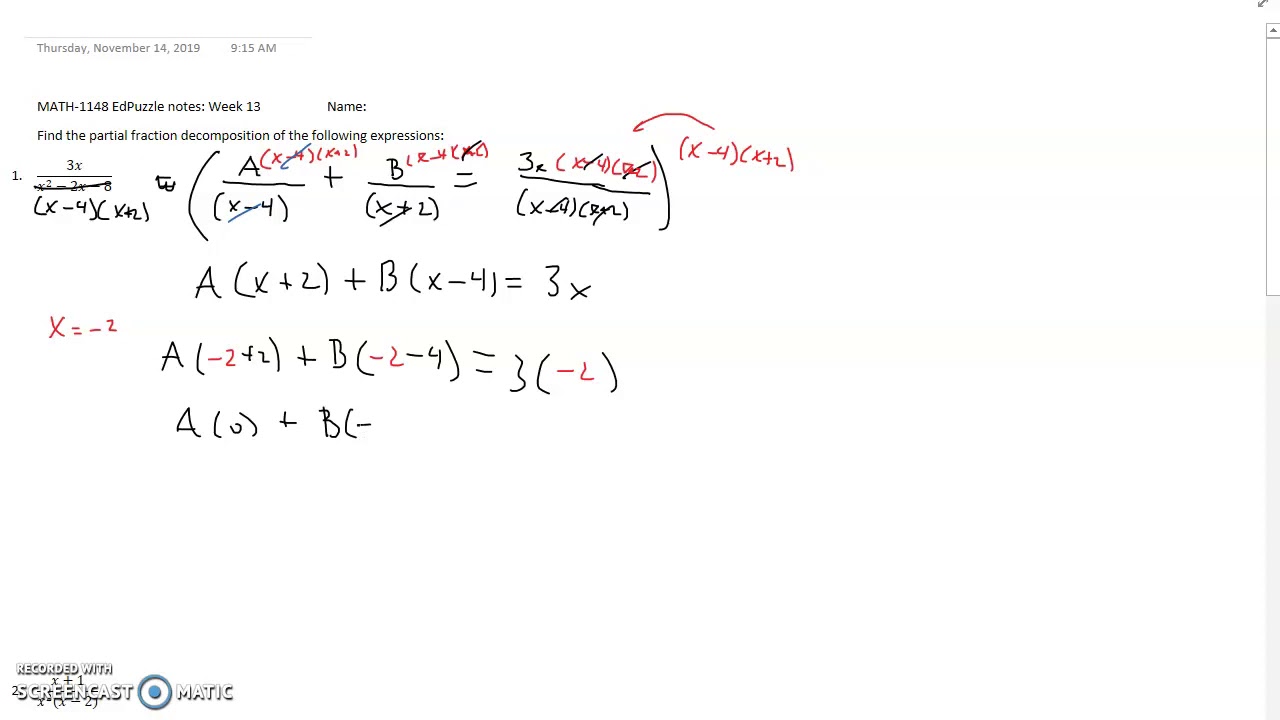 Thursday, November 14, 2019 9:15 AM
MATH-1148 EdPuzzle notes: Week 13 Name:
Find the partial fraction decomposition of the following expressions:
1. 3x / x² − 2x − 8
(x−4)(x+2)
( A(x−4)(x+2) / (x−4) + B(x−4)(x+2) / (x+2) = 3x(x−4)(x+2) / (x−4)(x+2) ) (x−4)(x+2)
A(x+2) + B(x−4) = 3x
x = −2
A(−2+2) + B(−2−4) = 3(−2)
A(0) + B(−
RECORDED WITH
SCREENCAST MATIC
2. x + 1 / x²(x − 2)